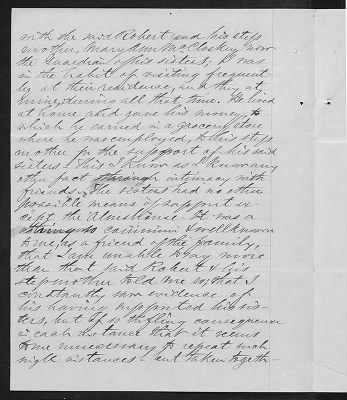 with the said Robert and his step
mother, Mary Ann McCloskey now
the Guardian of his sisters, I was
in the habit of visiting frequent-
ly at their residence, and they at
mine, during all that time. He lived
at home and gave his money, to
which he earned in a grocery store
where he was employed, to his step
mother for the support of his said
sisters. This I know as I know any
other fact through intimacy with
friends. The sisters had no other
possible means of support ex-
cept the Almshouse. It was a
thing so common & well known
to me, as a friend of the family,
that I am unable to say more
than that said Robert & his
stepmother told me so, that I
constantly saw evidence of
his having supported his sis-
ters, but of so trifling consequence
in each instance that it seems
to me unnecessary to repeat such
single instances - but taken togeth-